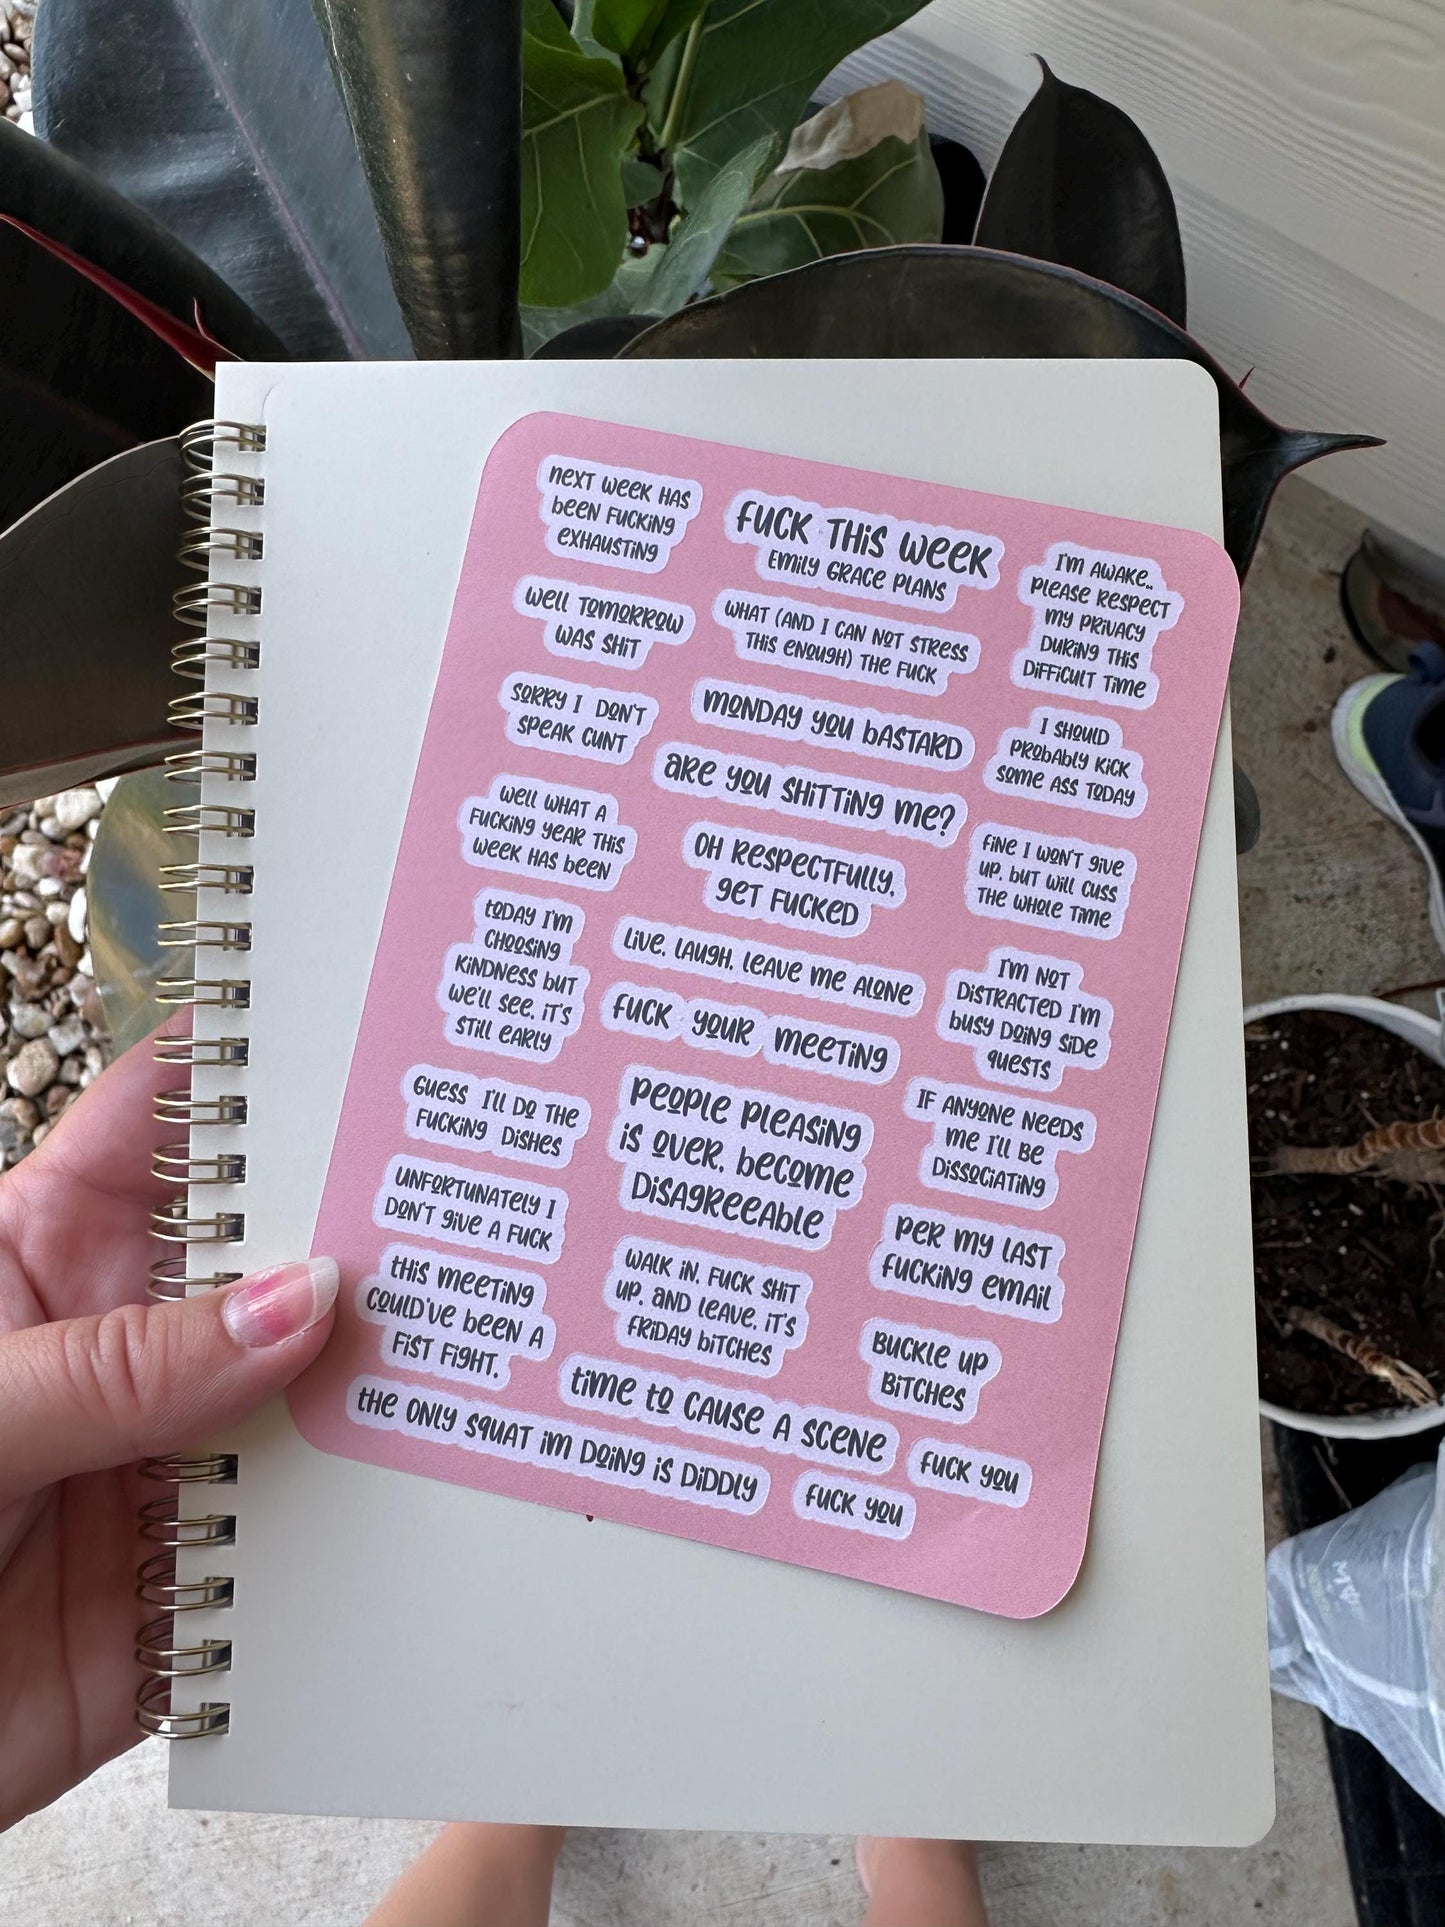 next week has
been fucking
exhausting
FUCK THIS WEEK
EMILY GRACE PLANS
I'm awake..
please respect
my privacy
during this
difficult time
well tomorrow
was shit
what (and I can not stress
this enough) the fuck
sorry I don't
speak cunt
monday you bastard
I should
probably kick
some ass today
are you shitting me?
well what a
fucking year this
week has been
oh respectfully,
get fucked
fine I won't give
up, but will cuss
the whole time
today I'm
choosing
kindness but
we'll see, it's
still early
live, laugh, leave me alone
I'm not
distracted I'm
busy doing side
quests
fuck your meeting
guess I'll do the
fucking dishes
people pleasing
is over, become
disagreeable
if anyone needs
me I'll be
dissociating
unfortunately I
don't give a fuck
per my last
fucking email
this meeting
could've been a
fist fight.
walk in, fuck shit
up, and leave, it's
friday bitches
buckle up
bitches
time to cause a scene
the only squat im doing is diddly
fuck you
fuck you